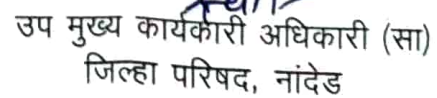 उप मुख्य कार्यकारी अधिकारी (सा)
जिल्हा परिषद, नांदेड